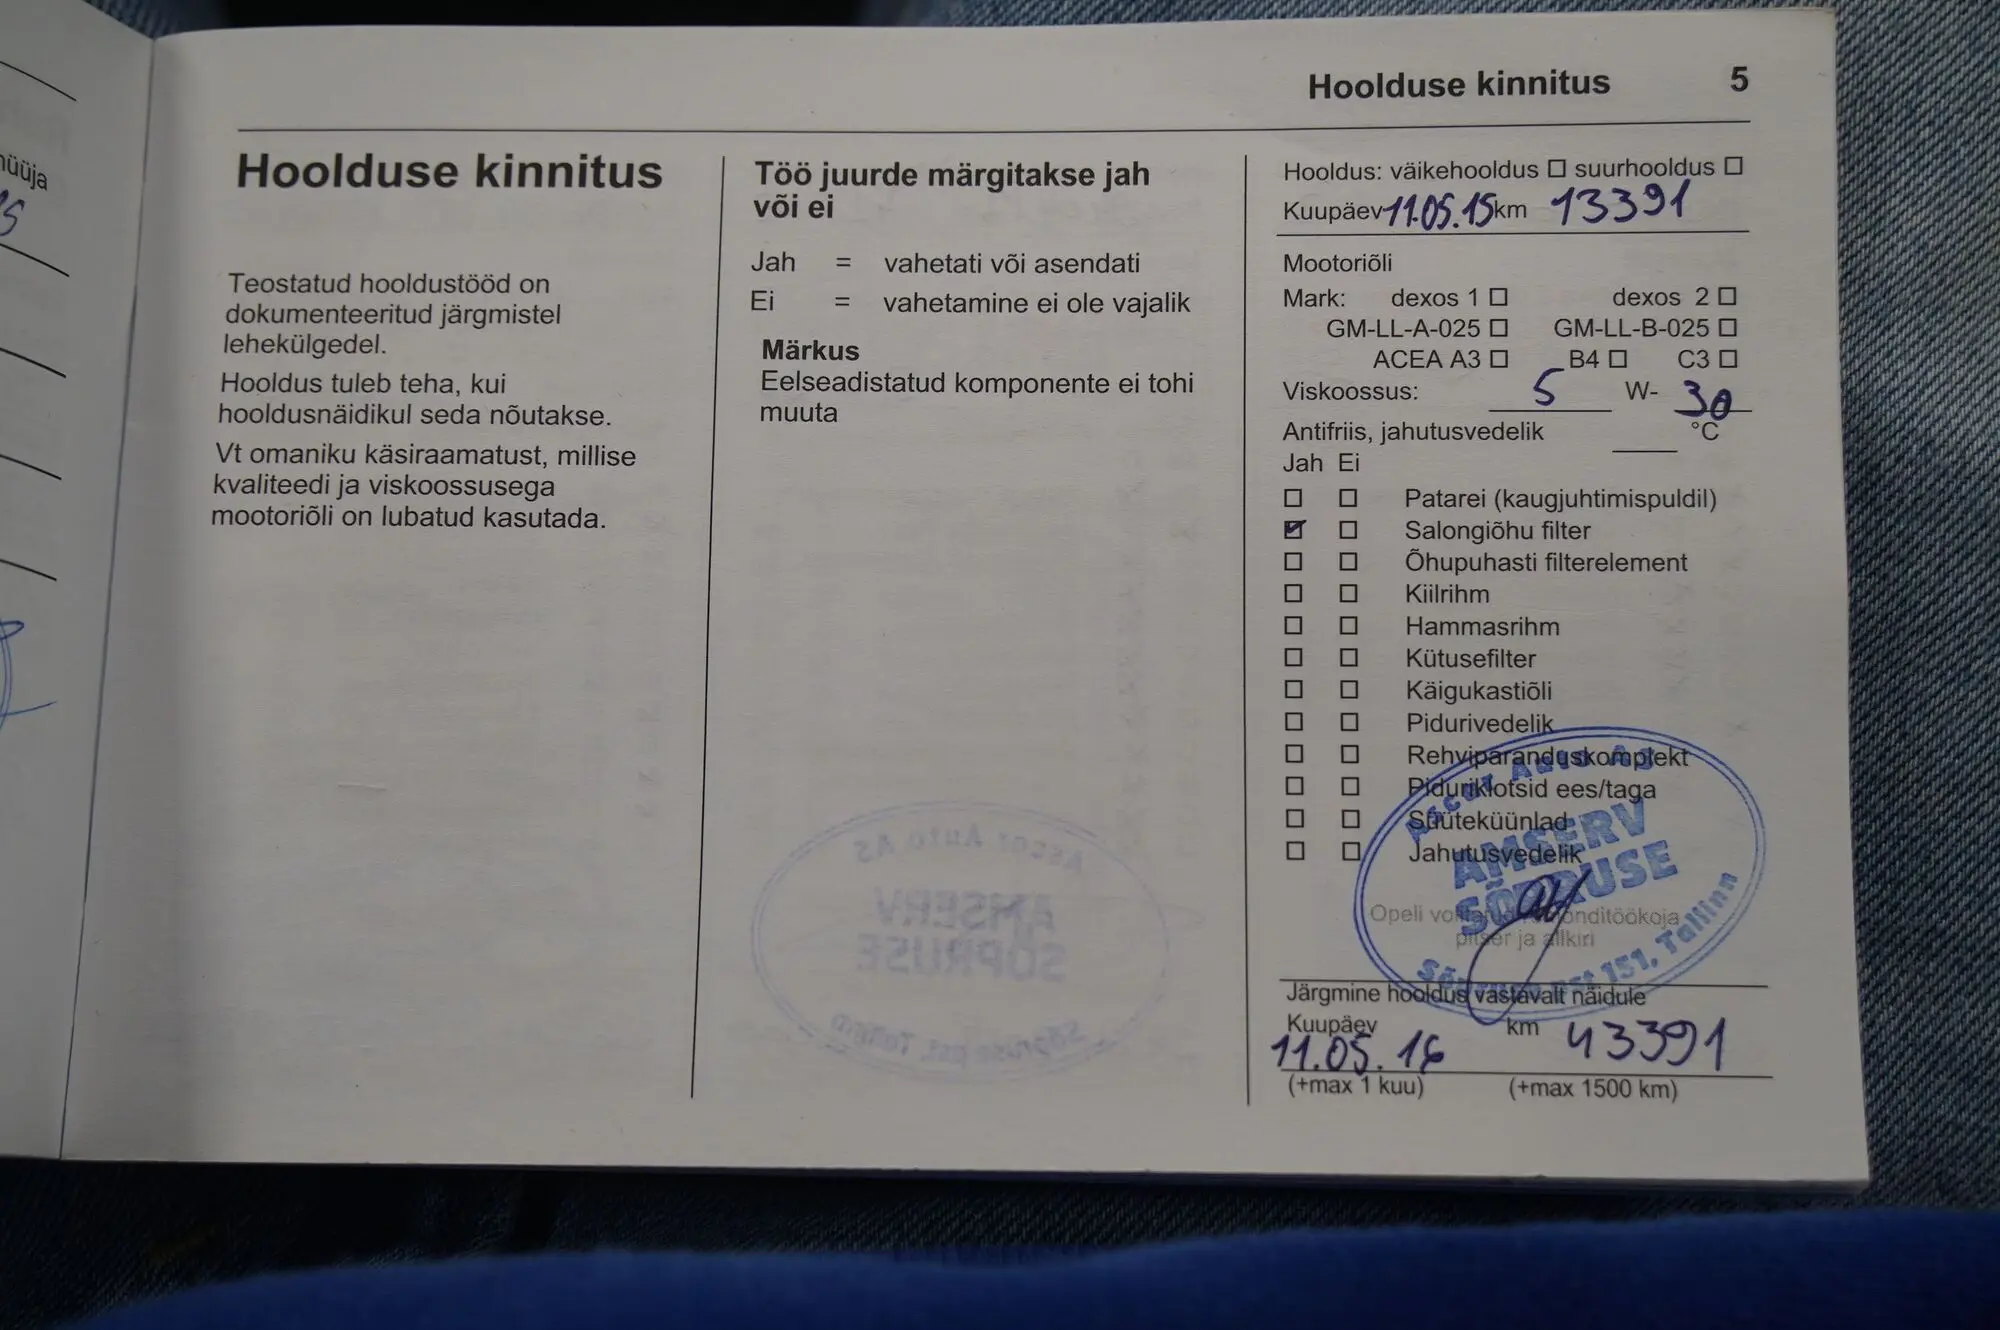 müüja
Hoolduse kinnitus 5
Hoolduse kinnitus
Teostatud hooldustööd on
dokumenteeritud järgmistel
lehekülgedel.
Hooldus tuleb teha, kui
hooldusnäidikul seda nõutakse.
Vt omaniku käsiraamatust, millise
kvaliteedi ja viskoossusega
mootoriõli on lubatud kasutada.
Töö juurde märgitakse jah
või ei
Jah = vahetati või asendati
Ei = vahetamine ei ole vajalik
Märkus
Eelseadistatud komponente ei tohi
muuta
Hooldus: väikehooldus ☐ suurhooldus ☐
Kuupäev 11.05.15 km 13391
Mootoriõli
Mark: dexos 1 ☐ dexos 2 ☐
GM-LL-A-025 ☐ GM-LL-B-025 ☐
ACEA A3 ☐ B4 ☐ C3 ☐
Viskoossus: 5 W- 30
Antifriis, jahutusvedelik °C
Jah Ei
☐ ☐ Patarei (kaugjuhtimispuldil)
☑ ☐ Salongiõhu filter
☐ ☐ Õhupuhasti filterelement
☐ ☐ Kiilrihm
☐ ☐ Hammasrihm
☐ ☐ Kütusefilter
☐ ☐ Käigukastiõli
☐ ☐ Pidurivedelik
☐ ☐ Rehviparanduskomplekt
☐ ☐ Piduriklotsid ees/taga
☐ ☐ Süüteküünlad
☐ ☐ Jahutusvedelik
Ascar Auto AS
AMSERV
SÕPRUSE
Sõpruse pst 151, Tallinn
Opeli volitatud remonditöökoja
pitser ja allkiri
Järgmine hooldus vastavalt näidule
Kuupäev km
11.05.16 43391
(+max 1 kuu) (+max 1500 km)